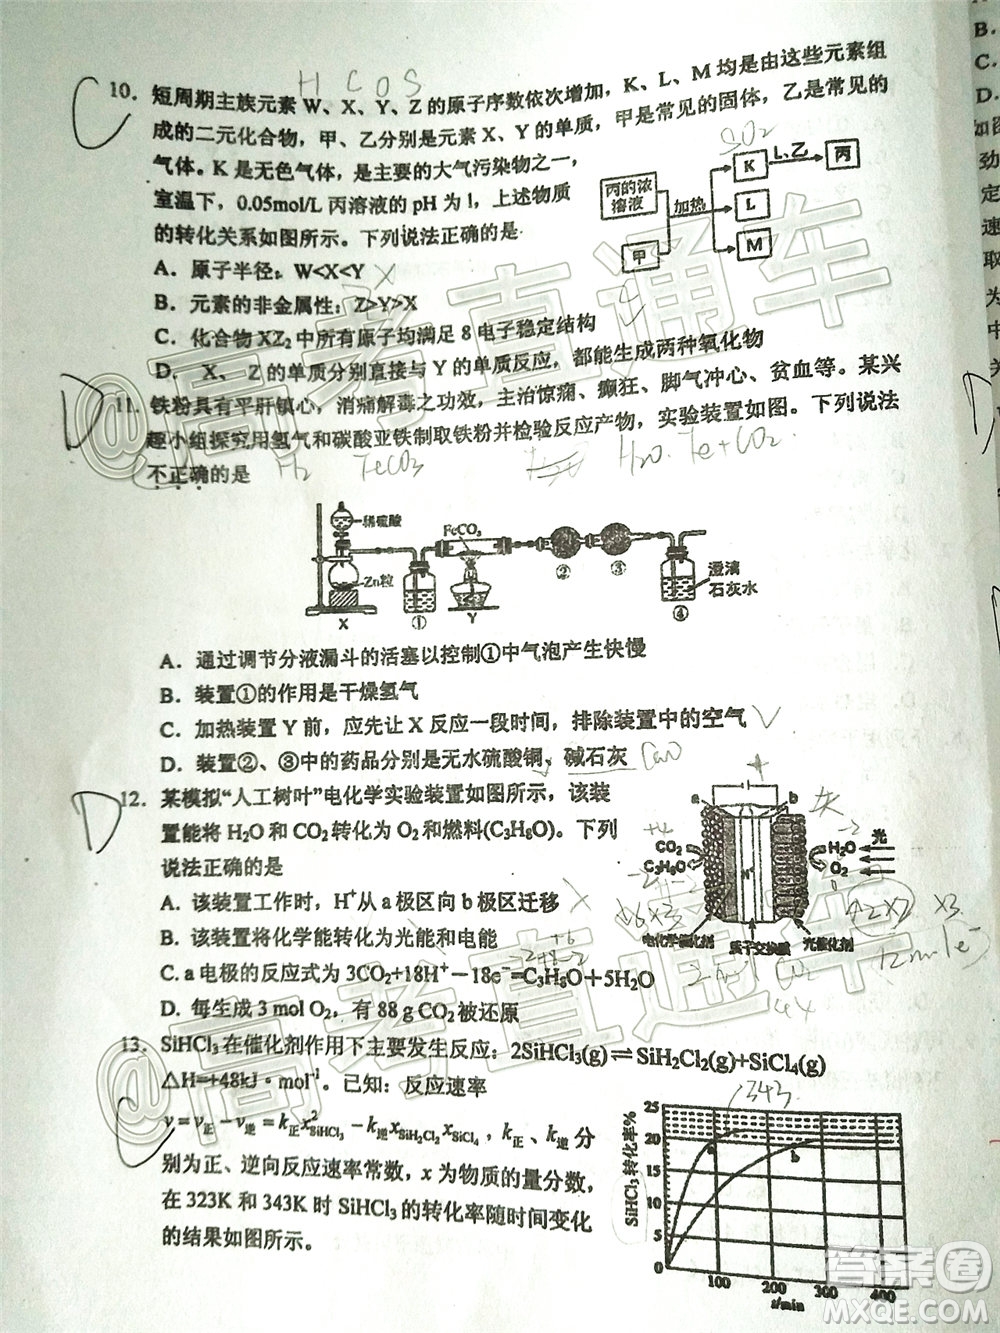 H C O S
C
10. 短周期主族元素 W、X、Y、Z 的原子序数依次增加，K、L、M 均是由这些元素组
成的二元化合物，甲、乙分别是元素 X、Y 的单质，甲是常见的固体，乙是常见的
气体。K 是无色气体，是主要的大气污染物之一，
室温下，0.05mol/L 丙溶液的 pH 为 1，上述物质
的转化关系如图所示。下列说法正确的是
SO2
丙的浓溶液
甲
加热
K
L、乙
丙
L
M
A．原子半径：W<X<Y
B．元素的非金属性：Z>Y>X
C．化合物 XZ2 中所有原子均满足 8 电子稳定结构
D． X、 Z 的单质分别直接与 Y 的单质反应，都能生成两种氧化物
D
11. 铁粉具有平肝镇心，消痈解毒之功效，主治惊痫、癫狂、脚气冲心、贫血等。某兴
趣小组探究用氢气和碳酸亚铁制取铁粉并检验反应产物，实验装置如图。下列说法
不正确的是
H2 FeCO3 H2O. Fe+CO2
稀硫酸
Zn粒
X
①
FeCO3
Y
②
③
澄清
石灰水
④
A．通过调节分液漏斗的活塞以控制①中气泡产生快慢
B．装置①的作用是干燥氢气
C．加热装置 Y 前，应先让 X 反应一段时间，排除装置中的空气
D．装置②、③中的药品分别是无水硫酸铜，碱石灰
CaO
D
12. 某模拟“人工树叶”电化学实验装置如图所示，该装
置能将 H2O 和 CO2 转化为 O2 和燃料(C3H8O)。下列
说法正确的是
a
b
CO2
C3H8O
H+
H2O
O2
光
电化学催化剂
质子交换膜
光催化剂
A．该装置工作时，H+从 a 极区向 b 极区迁移
B．该装置将化学能转化为光能和电能
C. a 电极的反应式为 3CO2+18H+−18e−=C3H8O+5H2O
D．每生成 3 mol O2，有 88 g CO2 被还原
C
13. SiHCl3 在催化剂作用下主要发生反应：2SiHCl3(g)⇌SiH2Cl2(g)+SiCl4(g)
△H=+48kJ·mol-1。已知：反应速率
v=v正−v逆=k正x²SiHCl3−k逆xSiH2Cl2xSiCl4，k正、k逆分
别为正、逆向反应速率常数，x 为物质的量分数，
在 323K 和 343K 时 SiHCl3 的转化率随时间变化
的结果如图所示。
343.
SiHCl3 转化率%
25
20
15
10
5
0
a
b
100 200 300 400
t/min
B.
C.
D.
如图
劲
定
速
取
为
中
关
@高考直通车
@高考直通车
答案圈
MXQE.COM